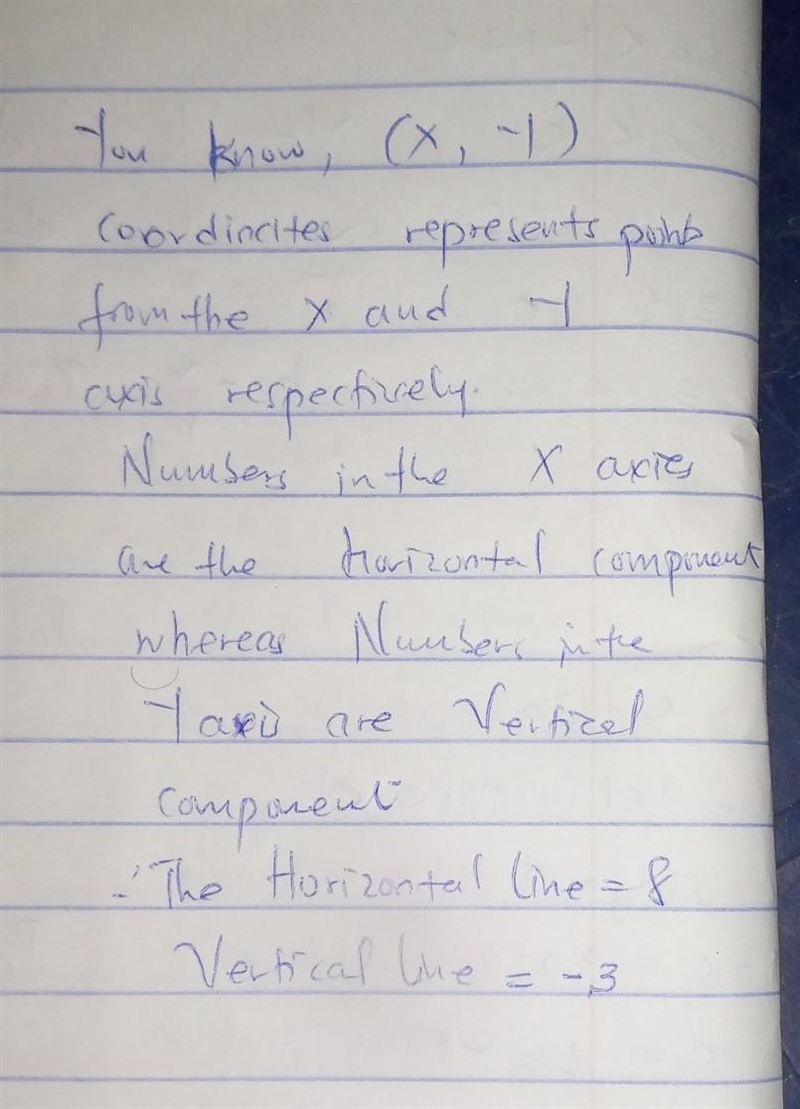 You know, (X, Y)
Coordinates represents points
from the X and Y
axis respectively.
Numbers in the X axies
are the Horizontal component
whereas Numbers in the
Y axis are Vertical
component
∴ The Horizontal line = 8
Vertical line = -3